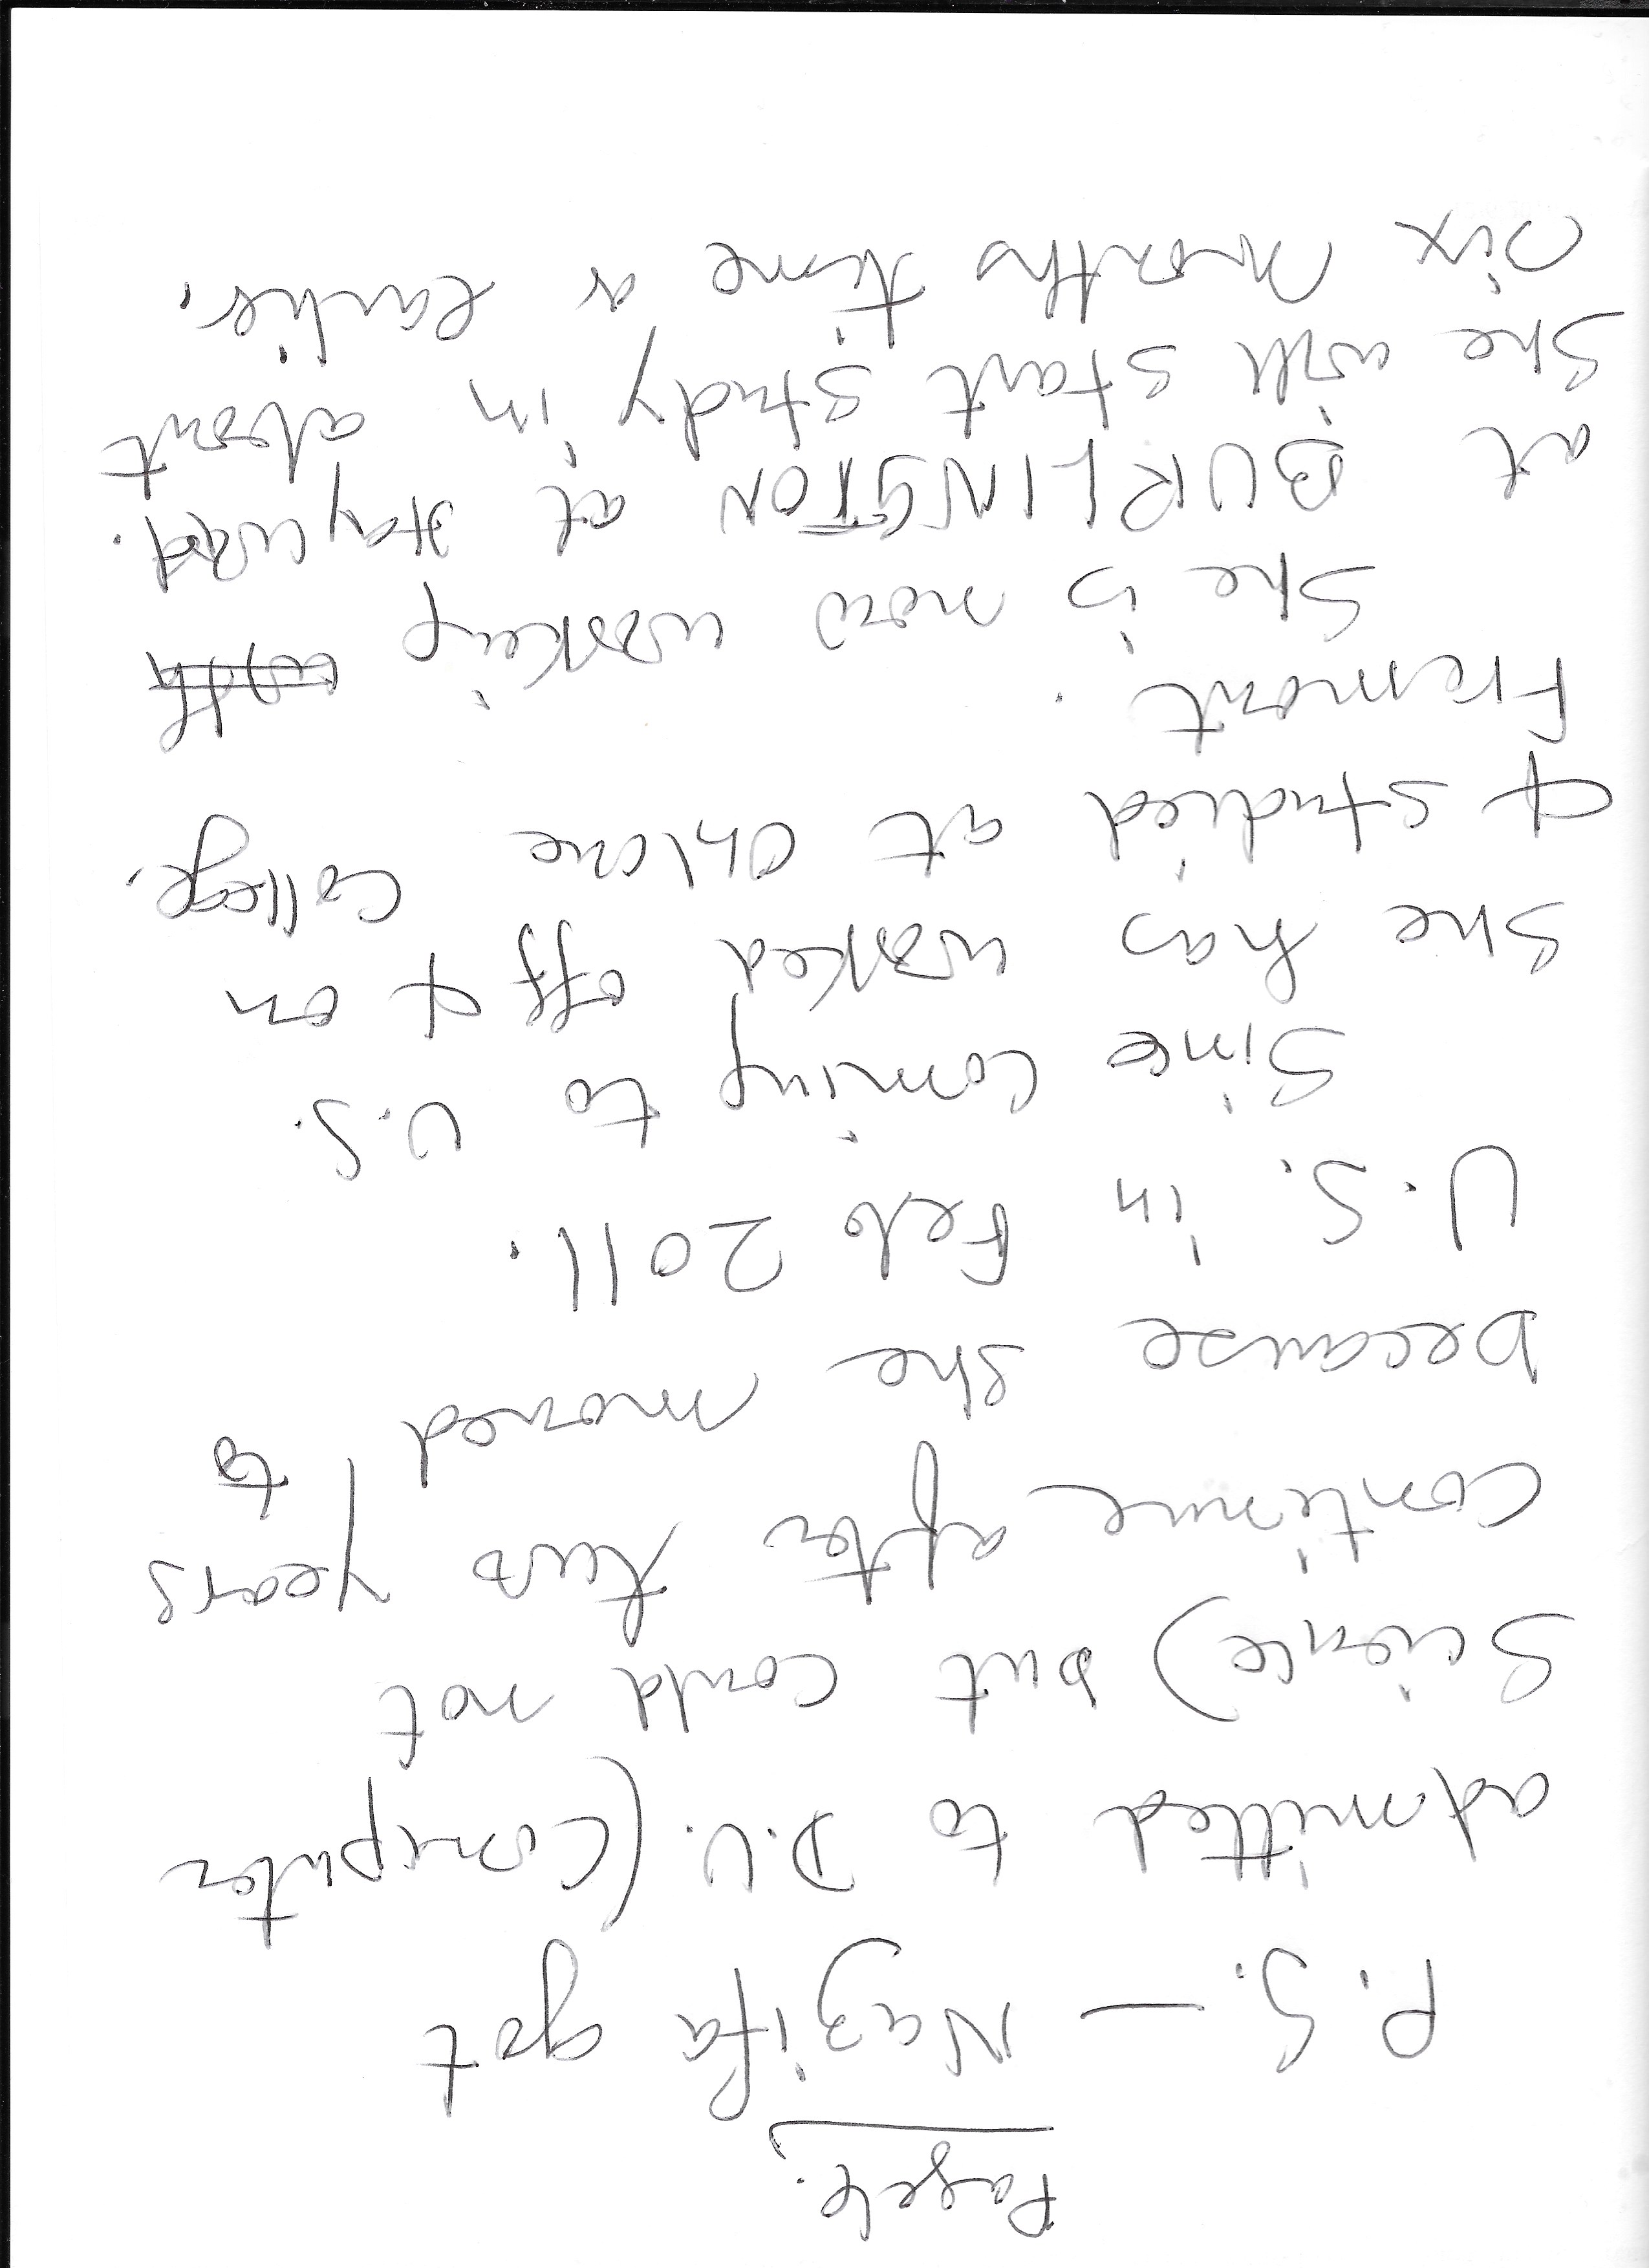 Page 6.
P.S. — Nazifa got
admitted to D.U. (Computer
Science) but could not
continue after two years
because she moved to
U.S. in Feb 2011.
Since coming to U.S.
She has worked off & on
& studied at Ohlone College.
Fremont.
She is now working with
at BURLINGTON at Hayward.
She will start study in about
Six months time or earlier.